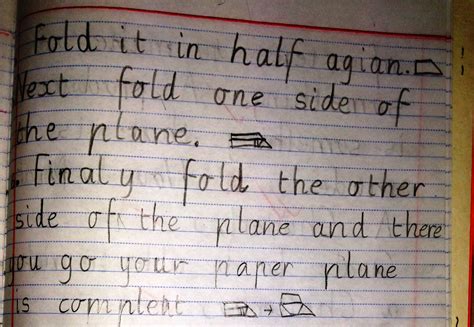 Fold it in half agian.
Next fold one side of
the plane.
. Finaly fold the other
side of the plane and there
you go your paper plane
is complent